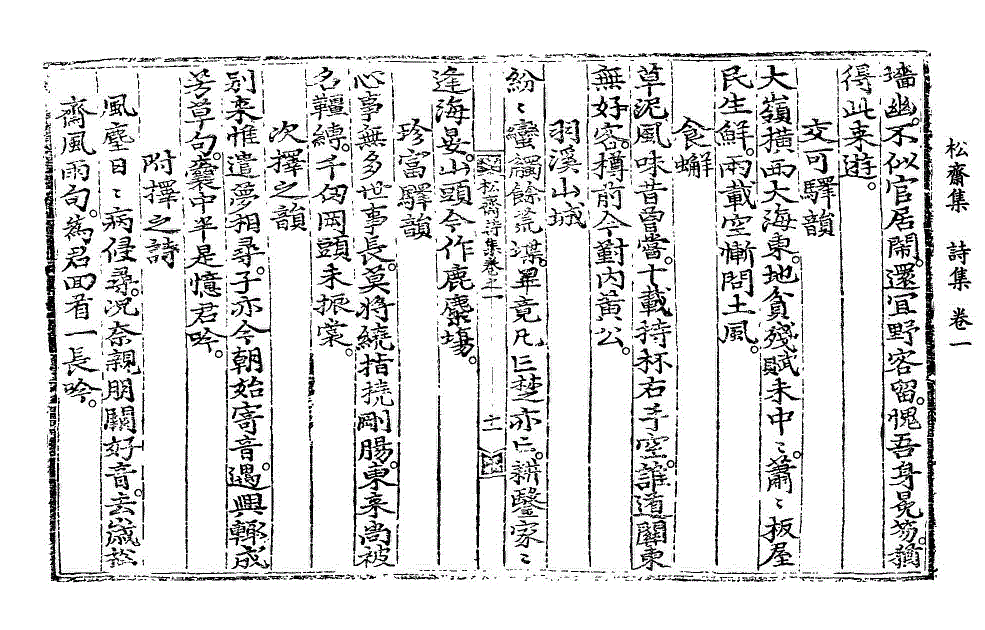 松齋集 詩集 卷一
墻幽。不似官居鬧。還宜野客留。愧吾身冕笏。猶
得此來遊。
交可驛韻
大嶺橫西大海東。地貧殘賦未中〻。蕭〻板屋
民生鮮。兩載空慚問土風。
食蠏
草泥風味昔曾嘗。十載持杯右手空。誰道關東
無好客。樽前今對內黃公。
羽溪山城
紛〻蠻觸餘荒堞。畢竟凡亡楚亦亡。耕鑿家〻
松齋詩集卷之一 十一
逢海晏。山頭今作鹿麋場。
珍富驛韻
心事無多世事長。莫將繞指撓剛腸。東來尚被
名韁縛。千仞岡頭未振裳。
次擇之韻
別來惟遣夢相尋。子亦今朝始寄音。遇興輒成
芳草句。囊中半是憶君吟。
附擇之詩
風塵日〻病侵尋。况奈親朋闕好音。去歲松
齋風雨句。爲君回看一長吟。